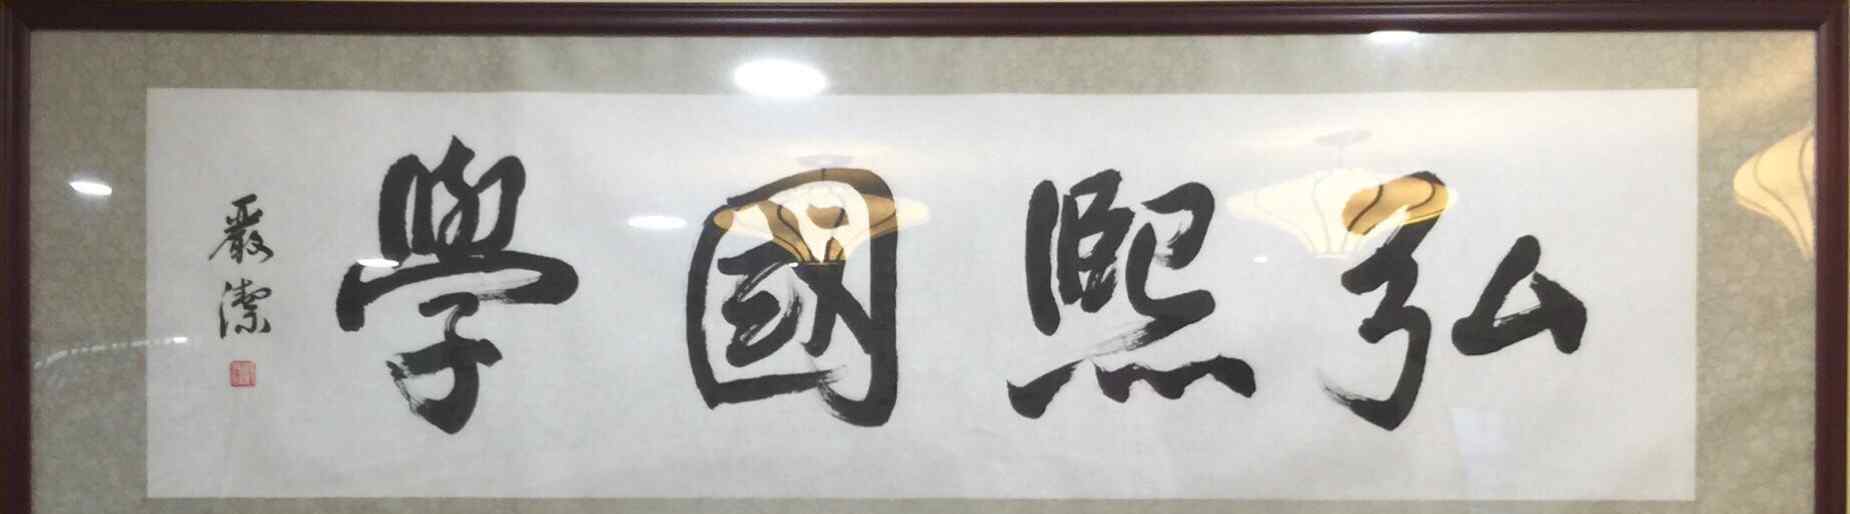 弘熙國學
嚴潔